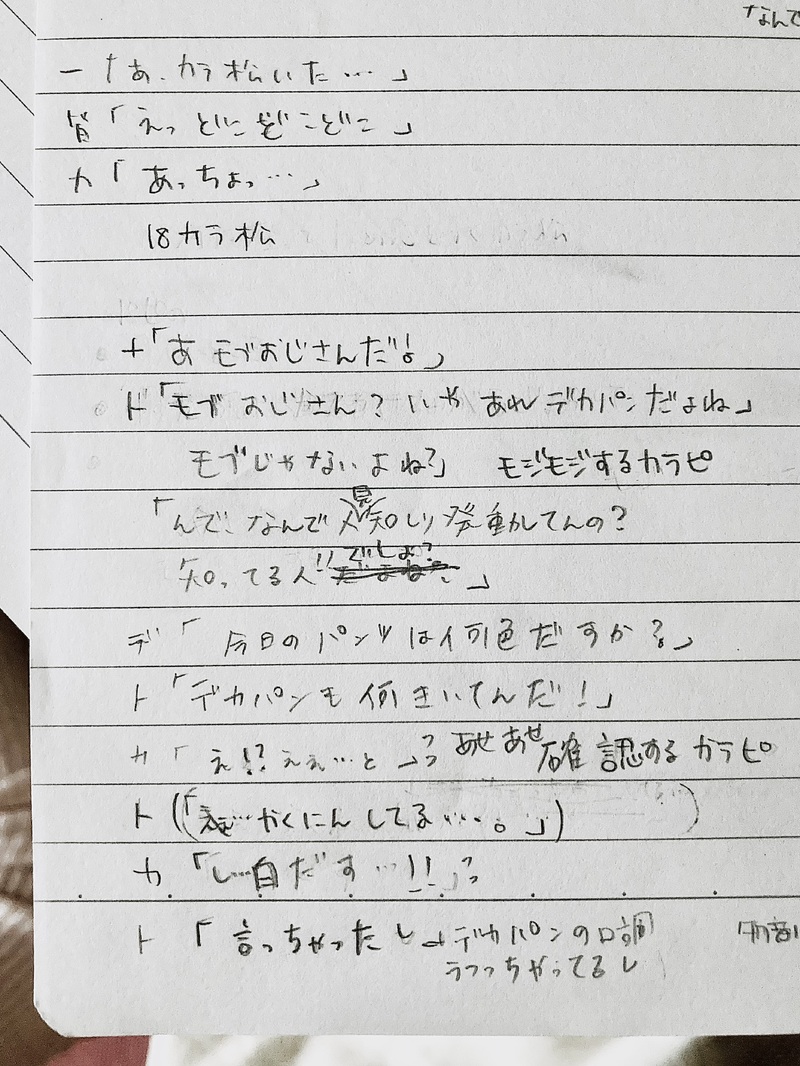 なんで
一「あ、カラ松いた…」
皆「えっどこどこどこ」
カ「あっちょっ…」
18カラ松
十「あモブおじさんだよ」
ト「モブおじさん？いやあれデカパンだよね」
モブじゃないよね?」 モジモジするカラピ
「んで、なんで人見知り発動してんの?
知ってる人!!でしょ?」
デ「今日のパンツは何色だすか?」
ト「デカパンも何きいてんだ!」
カ「え!?ええ…と」 あせあせ確認するカラピ
ト(「え…かくにんしてる…。」)
カ「し…白だす…!!」
ト「言っちゃったし デカパンの口調
うつっちゃってるし